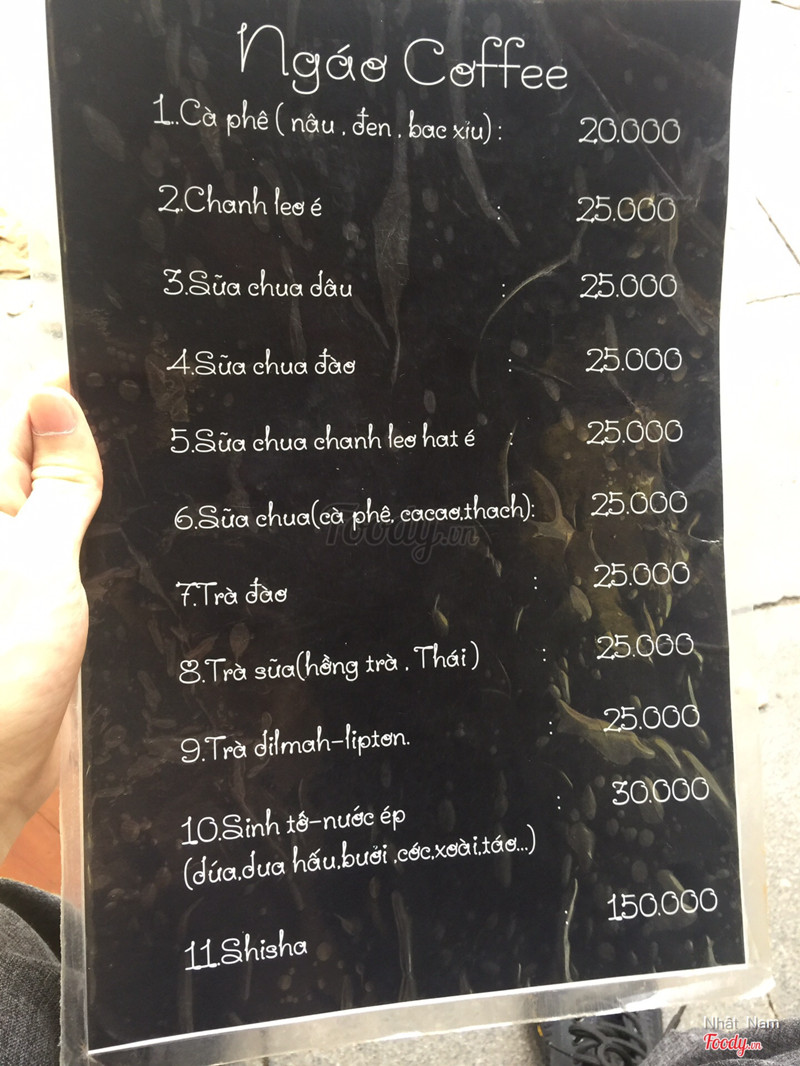 Ngáo Coffee
1..Cà phê ( nâu , đen , bac xiu) : 20.000
2.Chanh leo é : 25.000
3.Sữa chua dâu : 25.000
4.Sữa chua đào : 25.000
5.Sữa chua chanh leo hat é : 25.000
6.Sữa chua(cà phê, cacao,thach): 25.000
7.Trà đào : 25.000
8.Trà sữa(hồng trà , Thái ) : 25.000
9.Trà dilmah-lipton. : 25.000
10.Sinh tố-nước ép : 30.000
(dứa,dưa hấu,bưởi ,cóc,xoài,táo...)
11.Shisha : 150.000
Foody.vn
Nhất Nam
Foody.vn